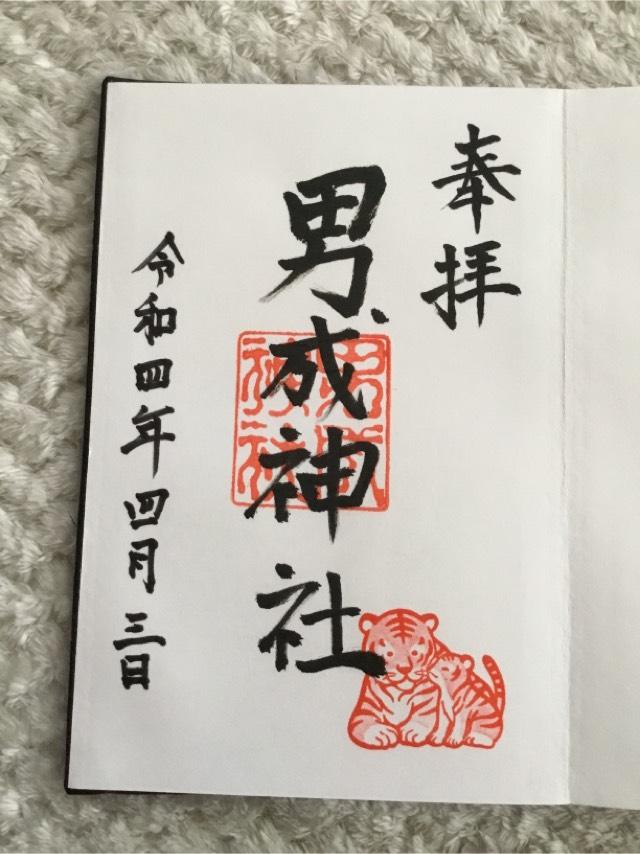 奉拝
男成神社
令和四年四月三日
男成神社